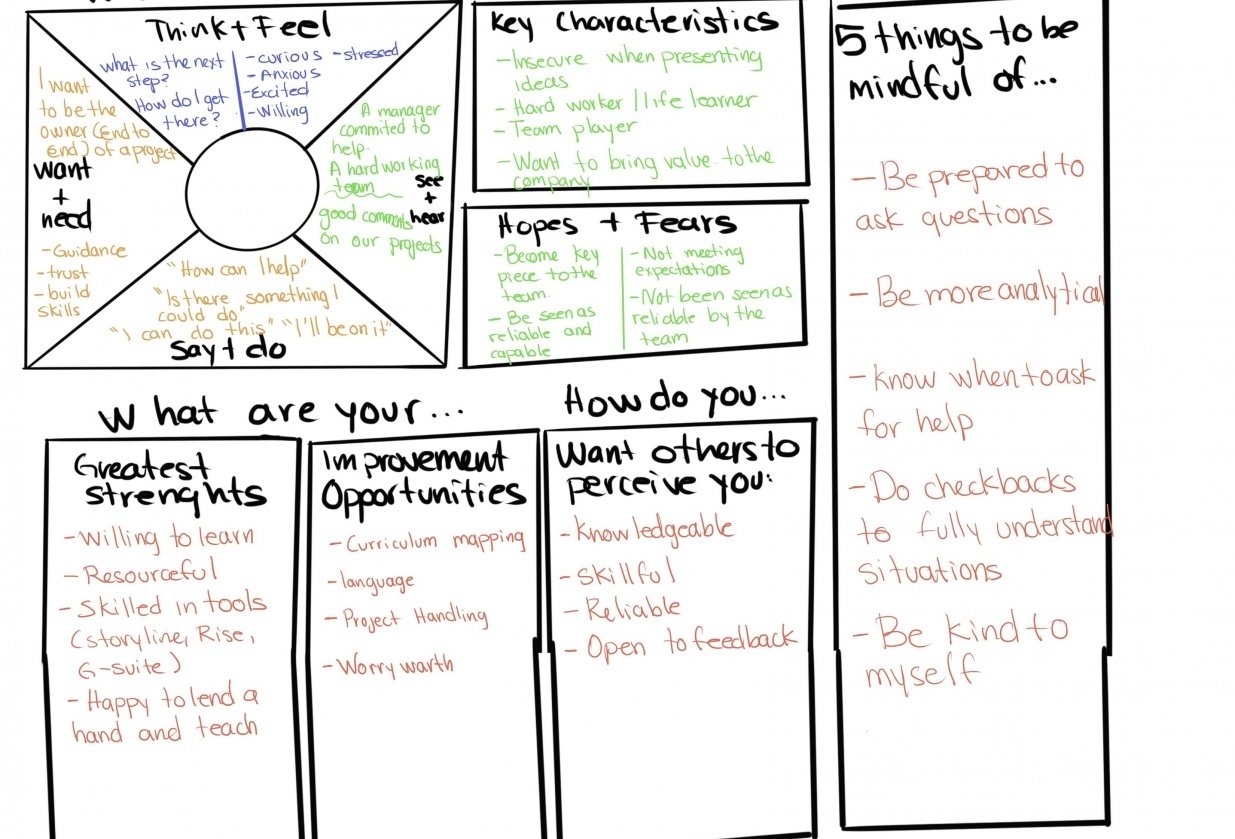 Think + Feel
what is the next
step?
How do I get
there?
- curious - stressed
- Anxious
- Excited
- Willing
I want
to be the
owner (end to
end) of a project
want
+
need
- Guidance
- trust
- build
skills
A manager
commited to
help.
A hard working
team
good comments
on our projects
see
+
hear
"How can I help"
"Is there something I
could do"
"I can do this" "I'll be on it"
Say + do
Key Characteristics
- Insecure when presenting
ideas
- Hard worker / life learner
- Team player
- Want to bring value to the
company
Hopes + Fears
- Become key
piece to the
team.
- Be seen as
reliable and
capable
- Not meeting
expectations
- Not been seen as
reliable by the
team
5 things to be
mindful of...
- Be prepared to
ask questions
- Be more analytical
- Know when to ask
for help
- Do checkbacks
to fully understand
situations
- Be kind to
myself
What are your...
Greatest
strenghts
- Willing to learn
- Resourceful
- Skilled in tools
(storyline, Rise,
G-suite)
- Happy to lend a
hand and teach
Improvement
Opportunities
- Curriculum mapping
- language
- Project Handling
- Worry warth
How do you...
Want others to
perceive you:
- Knowledgeable
- Skillful
- Reliable
- Open to feedback